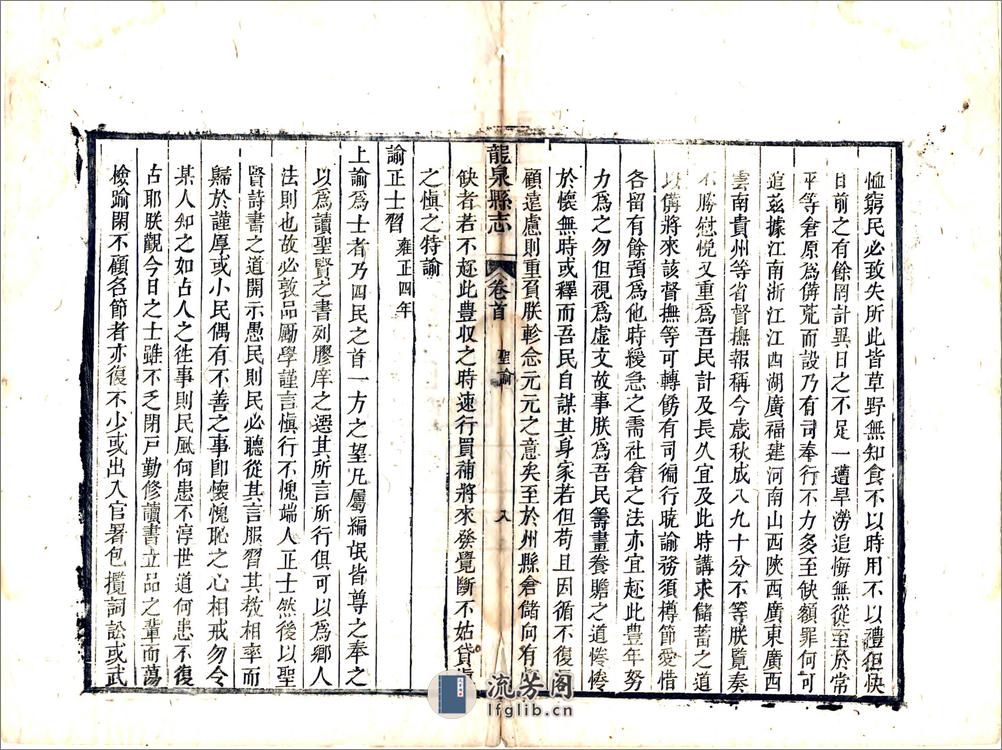 恤窮民必致失所此皆草野無知食不以時用不以禮但快
目前之有餘罔計異日之不足一遭旱澇追悔無從至於常
平等倉原爲備荒而設乃有司奉行不力多至缺額罪何可
逭茲據江南浙江江西湖廣福建河南山西陝西廣東廣西
雲南貴州等省督撫報稱今歲秋成八九十分不等朕覽奏
不勝慰悅又重爲吾民計及長久宜及此時講求儲蓄之道
以備將來該督撫等可轉飭有司徧行曉諭務須樽節愛惜
各留有餘預爲他時緩急之需社倉之法亦宜趁此豐年努
力爲之勿但視爲虛文故事朕爲吾民籌畫養贍之道惓惓
於懷無時或釋而吾民自謀其身家若但苟且因循不復
顧遠慮則重負朕軫念元元之意矣至於州縣倉儲向有
缺者若不趁此豐收之時速行買補將來發覺斷不姑貸
之慎之特諭
龍泉縣志 卷首 聖諭 八
諭正士習 雍正四年
上諭爲士者乃四民之首一方之望凡屬編氓皆尊之奉之
以爲讀聖賢之書列膠庠之選其所言所行俱可以爲鄉人
法則也故必敦品勵學謹言慎行不愧端人正士然後以聖
賢詩書之道開示愚民則民必聽從其言服習其教相率而
歸於謹厚或小民偶有不善之事卽懷愧恥之心相戒勿令
某人知之如古人之往事則民風何患不淳世道何患不復
古耶朕觀今日之士雖不乏閉戶勤修讀書立品之輩而蕩
檢踰閑不顧名節者亦復不少或出入官署包攬詞訟或武
流芳閣
lfglib.cn